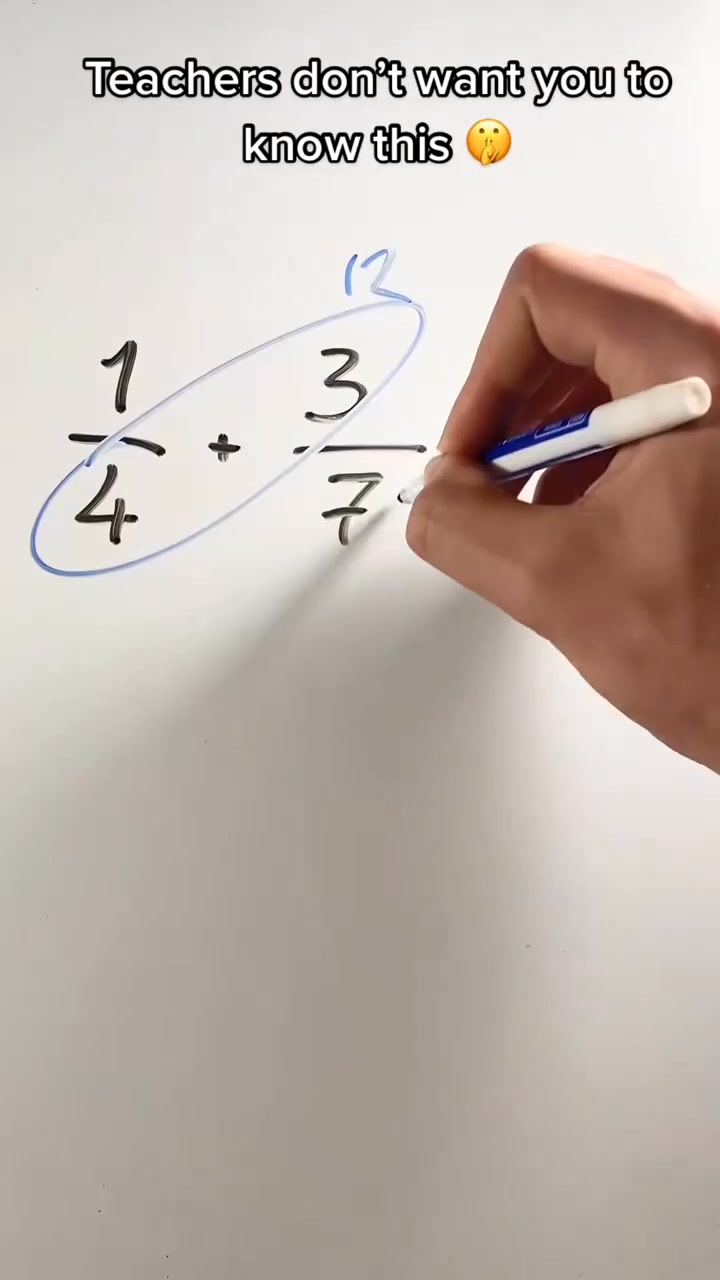 Teachers don't want you to
know this 🤫
12
1 3
+
4 7